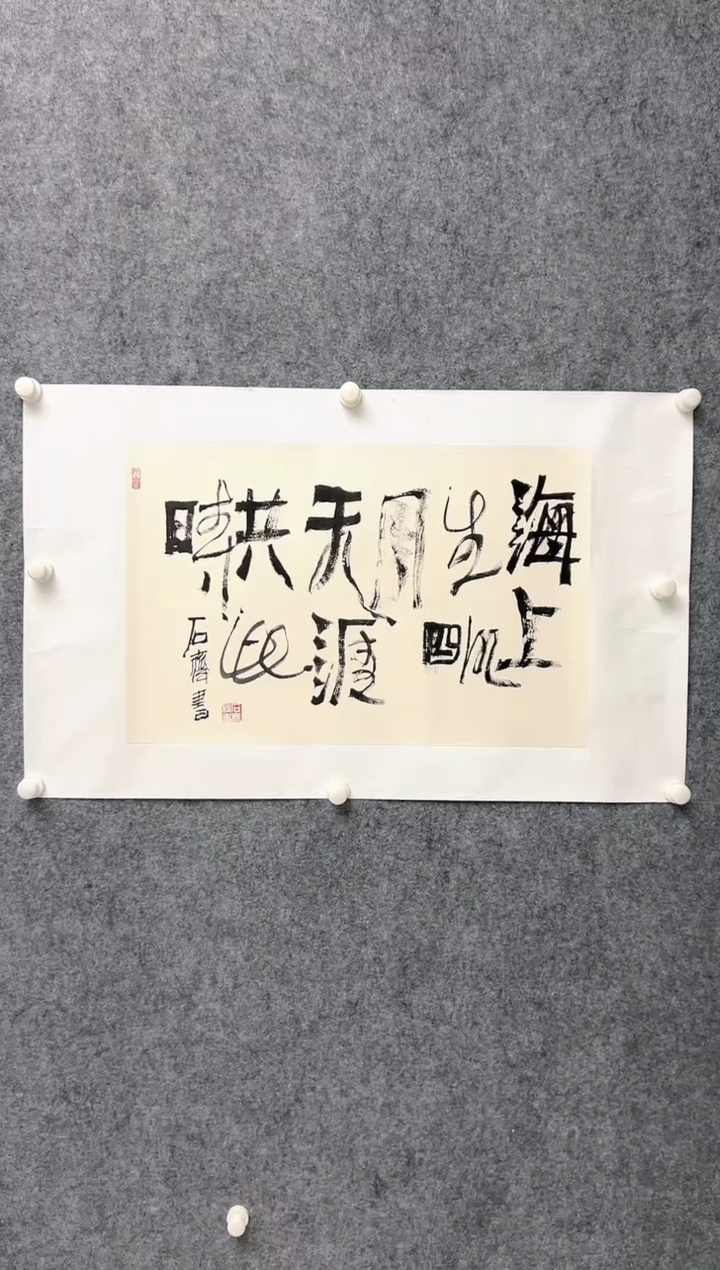 海上
生明
月
天涯
共此
時
石齊書